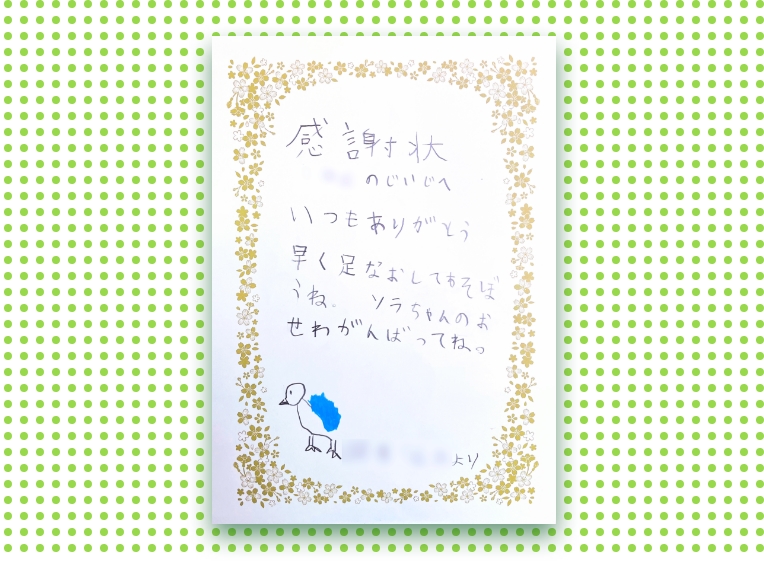 感謝状
のじいじへ
いつもありがとう
早く足なおしてあそぼ
うね。 ソラちゃんのお
せわがんばってね。
より